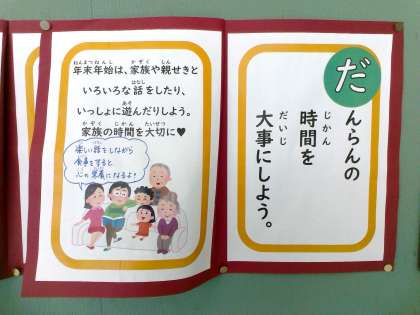 だんらんの
時間を
大事にしよう。
年末年始は、家族や親せきと
いろいろな話をしたり、
いっしょに遊んだりしよう。
家族の時間を大切に♥
楽しい話をしながら
食事をすると
心の栄養になるよ!